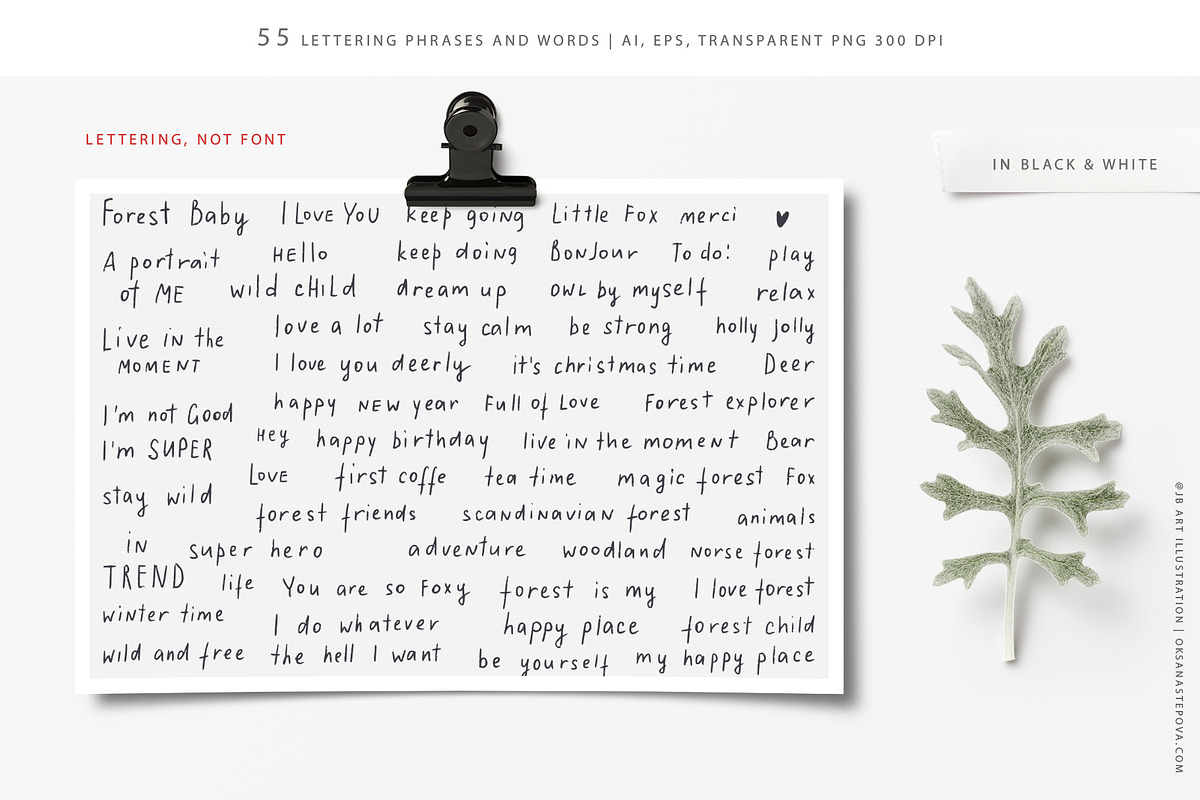 55 LETTERING PHRASES AND WORDS | AI, EPS, TRANSPARENT PNG 300 DPI
LETTERING, NOT FONT
IN BLACK & WHITE
Forest Baby I Love You keep going Little Fox merci
A portrait of ME Hello keep doing BonJour To do: play
wild child dream up owl by myself relax
Live in the MOMENT love a lot stay calm be strong holly jolly
I love you deerly it's christmas time Deer
I'm not Good happy new year Full of Love Forest explorer
I'm SUPER Hey happy birthday live in the moment Bear
stay wild Love first coffe tea time magic forest Fox
forest friends scandinavian forest animals
in TREND super hero adventure woodland Norse forest
life You are so Foxy forest is my I love forest
winter time I do whatever happy place forest child
wild and free the hell I want be yourself my happy place
@JB ART ILLUSTRATION | OKSANASTEPOVA.COM